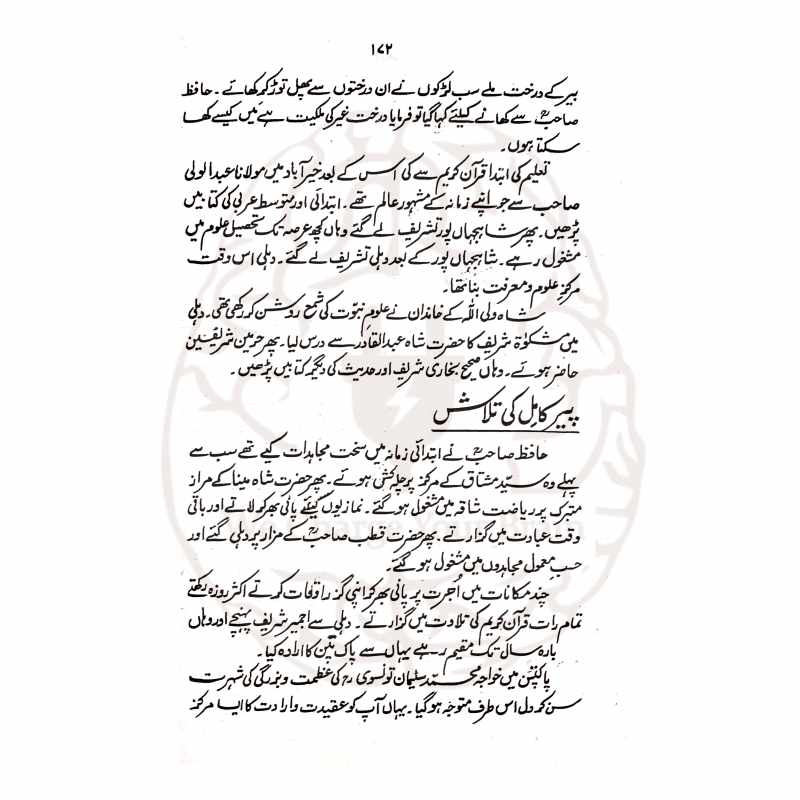 ۱۷۲
بیر کے درخت ملے سب لڑکوں نے ان درختوں سے پھل توڑ کر کھائے ۔ حافظ
صاحبؒ سے کھانے کیلئے کہا گیا تو فرمایا درخت غیر کی ملکیت ہے میں کیسے کھا
سکتا ہوں۔
تعلیم کی ابتدا قرآن کریم سے کی اس کے بعد خیر آباد میں مولانا عبد الولی
صاحب سے جو اپنے زمانہ کے مشہور عالم تھے۔ ابتدائی اور متوسط عربی کی کتابیں
پڑھیں۔ پھر شاہجہاں پور تشریف لے گئے وہاں کچھ عرصہ تک تحصیل علوم میں
مشغول رہے۔ شاہجہاں پور کے بعد دہلی تشریف لے گئے ۔ دہلی اس وقت
مرکز علوم و معرفت بنا تھا۔
شاہ ولی اللہ کے خاندان نے علوم نبوّت کی شمع روشن کر رکھی تھی۔ دہلی
میں مشکوٰۃ شریف کا حضرت شاہ عبدالقادر سے درس لیا۔ پھر حرمین شریفین
حاضر ہوئے۔ وہاں صحیح بخاری شریف اور حدیث کی دیگر کتابیں پڑھیں ۔
پیر کامل کی تلاش
حافظ صاحبؒ نے ابتدائی زمانہ میں سخت مجاہدات کیے تھے سب سے
پہلے وہ سیّد مشتاق کے مرکز پر چلہ کشی ہوئے۔ پھر حضرت شاہ مینا کے مزار
متبرک پر ریاضت شاقہ میں مشغول ہو گئے۔ نمازیوں کیلئے پانی بھر کر لاتے اور باقی
وقت عبادت میں گزارتے ۔ پھر حضرت قطب صاحبؒ کے مزار پر دہلی گئے اور
حسبِ معمول مجاہدوں میں مشغول ہو گئے۔
چند مکانات میں اُجرت پر پانی بھر کر اپنی گزر اوقات کرتے اکثر روزہ رکھتے
تمام رات قرآن کریم کی تلاوت میں گزارتے ۔ دہلی سے اجمیر شریف پہنچے اور وہاں
بارہ سال تک مقیم رہے یہاں سے پاک پتن کا ارادہ کیا۔
پاکپتن میں خواجہ محمد سلیمان تونسوی رح کی عظمت و بزرگی کی شہرت
سن کر دل اس طرف متوجہ ہو گیا۔ یہاں آپ کو عقیدت و ارادت کا ایسا مرکز